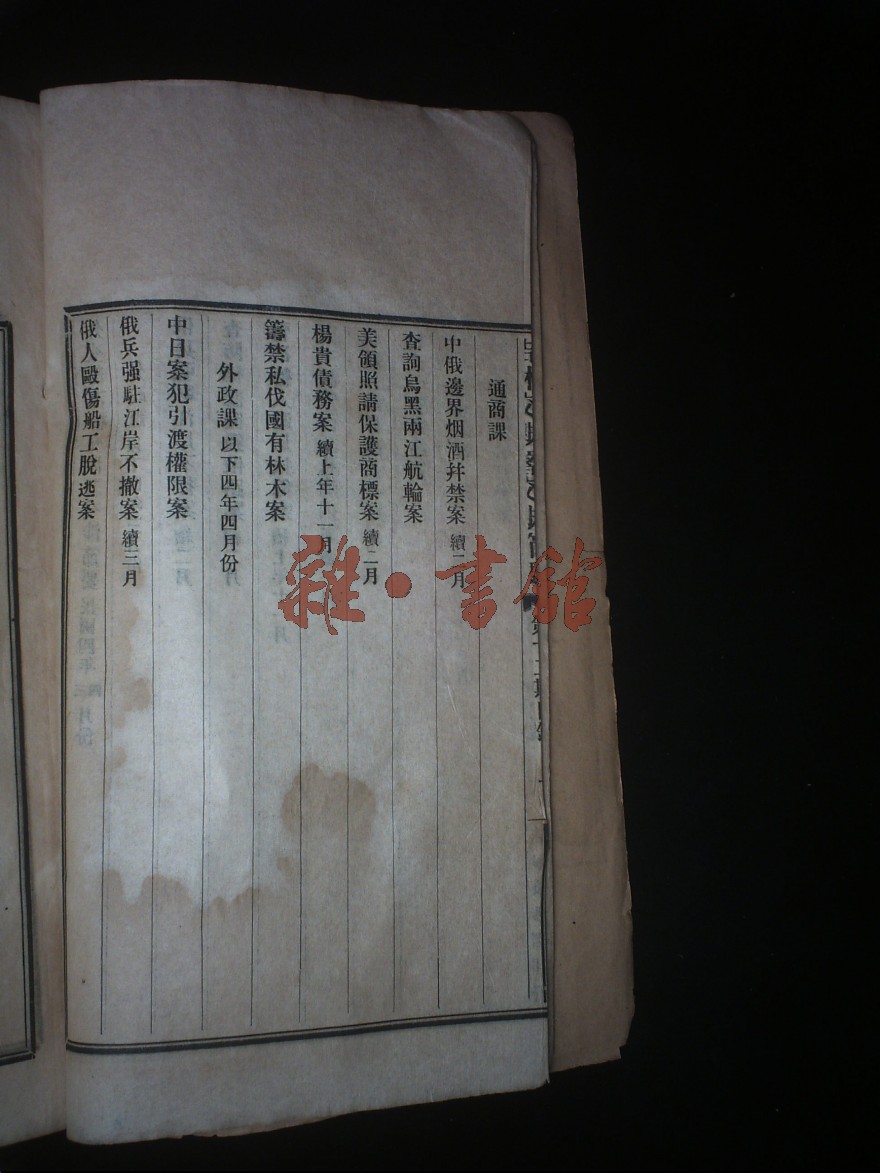 通商課
中俄邊界烟酒幷禁案 續二月
查詢烏黑兩江航輪案
美領照請保護商標案 續二月
楊貴債務案 續上年十一月
籌禁私伐國有林木案
外政課 以下四年四月份
中日案犯引渡權限案
俄兵强駐江岸不撤案 續三月
俄人毆傷船工脫逃案
雜·書館